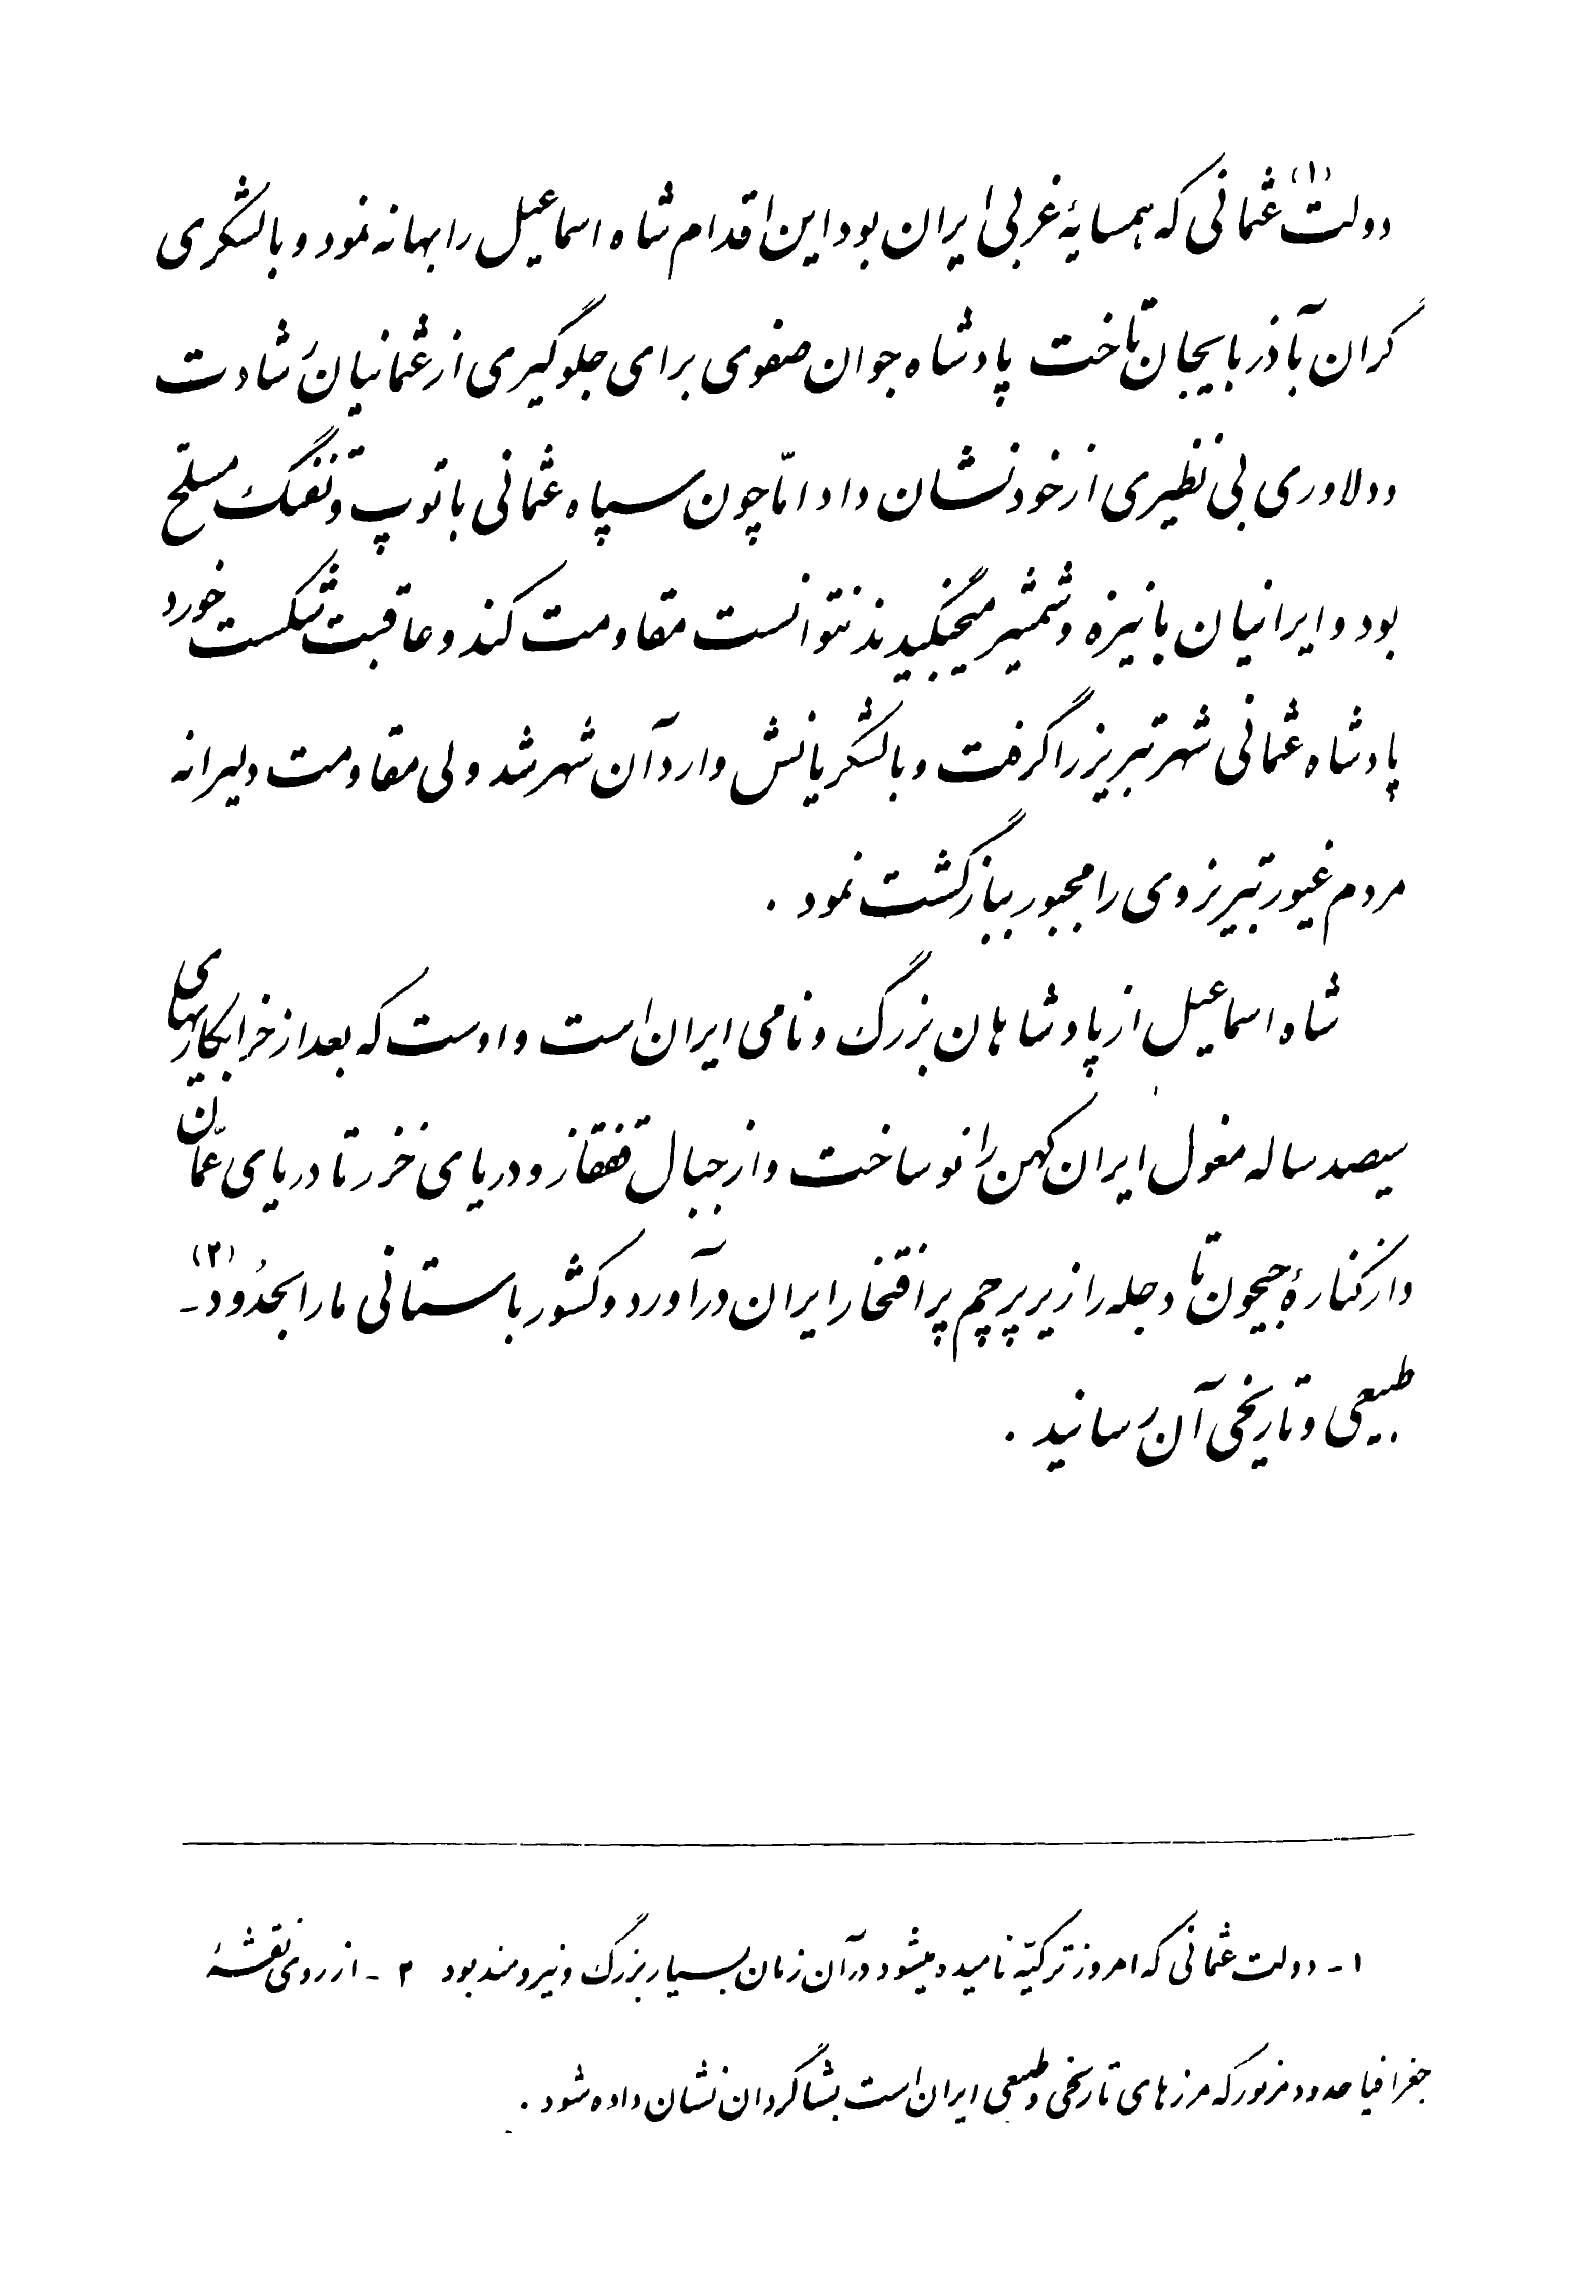 دولت(۱) عثمانی که همسایهٔ غربی ایران بود این اقدام شاه اسماعیل را بهانه نمود و با لشکری
گران بآذربایجان تاخت پادشاه جوان صفوی برای جلوگیری از عثمانیان رشادت
و دلاوری بی نظیری از خود نشان داد امّا چون سپاه عثمانی با توپ و تفنگ مسلّح
بود و ایرانیان با نیزه و شمشیر میجنگیدند نتوانست مقاومت کند و عاقبت شکست خورد
پادشاه عثمانی شهر تبریز را گرفت و با لشکریانش وارد آن شهر شد ولی مقاومت دلیرانه
مردم غیور تبریز وی را مجبور ببازگشت نمود .
شاه اسماعیل از پادشاهان بزرگ و نامی ایران است و اوست که بعد از خرابکاریهای
سیصد ساله مغول ایران کهن را نو ساخت و از جبال قفقاز و دریای خزر تا دریای عمّان
و از کنارهٔ جیحون تا دجله را زیر پرچم پر افتخار ایران درآورد و کشور باستانی ما را بحدُود(۲) -
طبیعی و تاریخی آن رسانید .
۱- دولت عثمانی که امروز ترکیّه نامیده میشود در آن زمان بسیار بزرگ و نیرومند بود ۲ - از روی نقشهٔ
جغرافیا حدود مزبور که مرزهای تاریخی و طبیعی ایران است بشاگردان نشان داده شود .